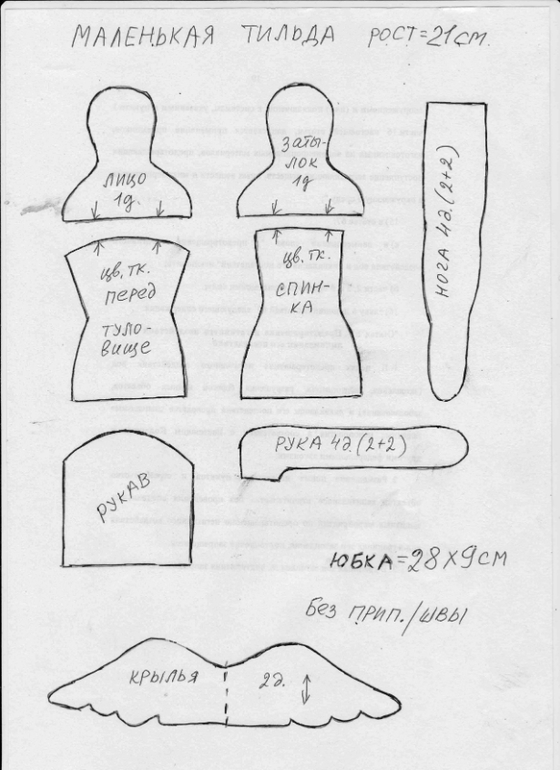 МАЛЕНЬКАЯ ТИЛЬДА РОСТ=21СМ.
ЛИЦО
1д.
ЗАТЫ-
ЛОК
1д
НОГА 4д.(2+2)
цв.тк.
ПЕРЕД
ТУЛО-
ВИЩЕ
цв.тк.
СПИН-
КА
РУКАВ
РУКА 4д.(2+2)
ЮБКА=28х9СМ
Без ПРИП./ШВЫ
КРЫЛЬЯ 2д.